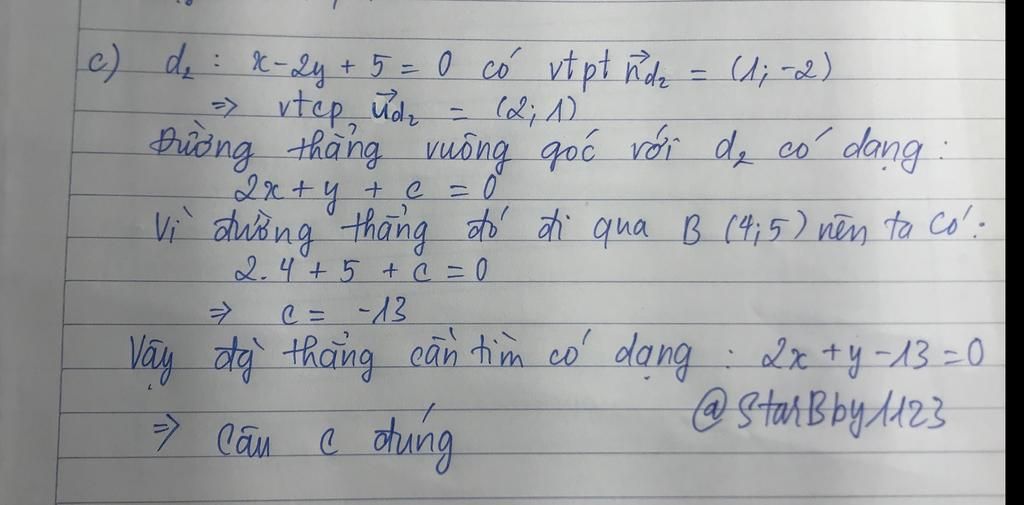 c) d₂ : x - 2y + 5 = 0 có vtpt n⃗d₂ = (1; -2)
=> vtcp u⃗d₂ = (2; 1)
Đường thẳng vuông góc với d₂ có dạng :
2x + y + c = 0
Vì đường thẳng đó đi qua B (4; 5) nên ta có :
2. 4 + 5 + c = 0
=> c = -13
Vậy đg thẳng cần tìm có dạng : 2x + y - 13 = 0
@StarBby1123
=> Câu c đúng